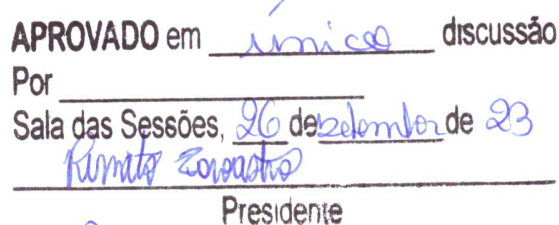 APROVADO em única discussão
Por
Sala das Sessões, 26 de setembro de 23
Renato Zoroastro
Presidente